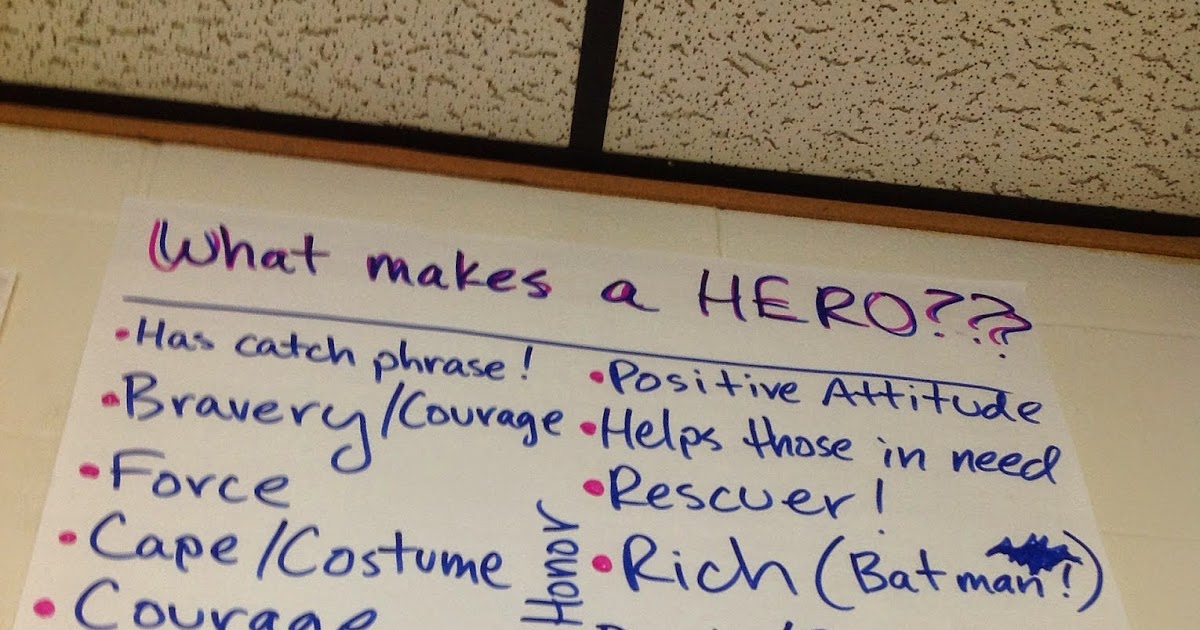 What makes a HERO???
• Has catch phrase!
• Bravery/Courage
• Force
• Cape/Costume
• Courage
Honor
• Positive Attitude
• Helps those in need
• Rescuer!
• Rich (Batman!)